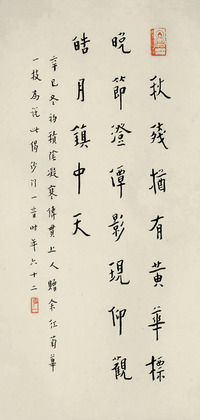 秋殘猶有黃華標
晚節澄潭影現仰觀
皓月鎮中天
辛巳冬初積陰凝寒傳貫上人贈余紅菊華
一枝為說此偈沙門一音時年六十二